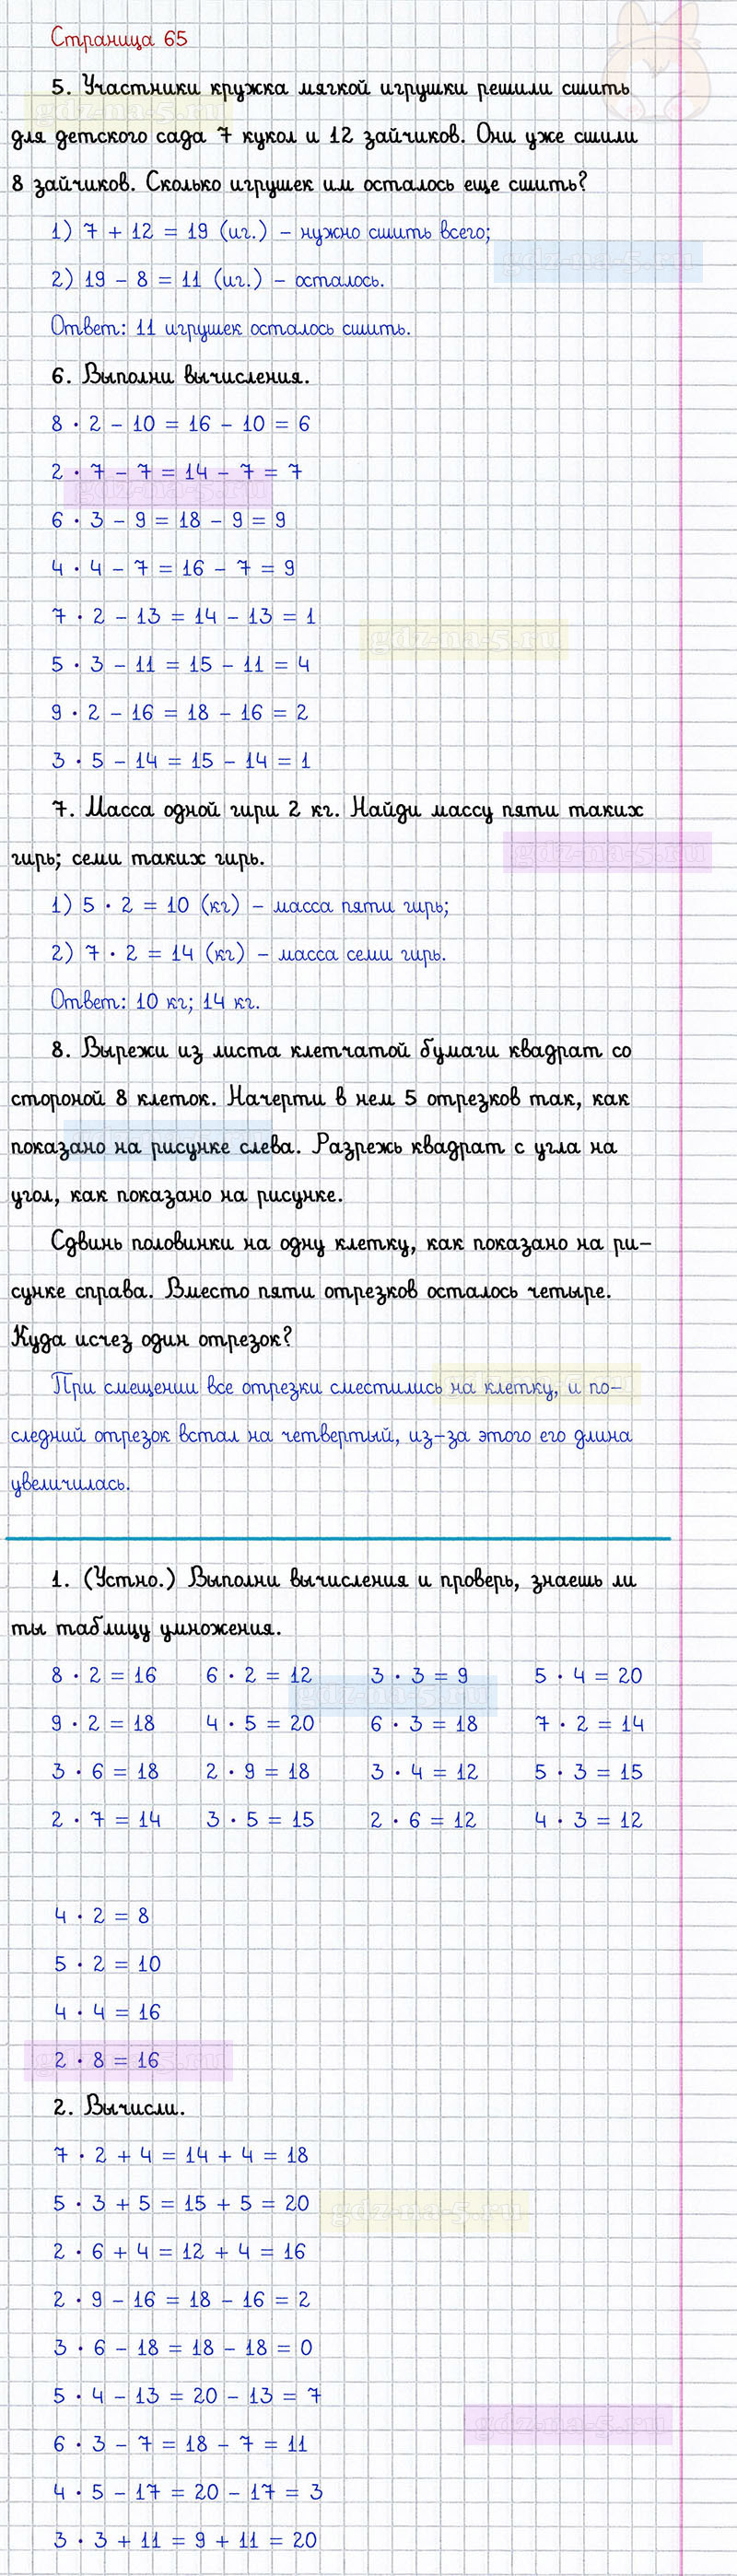 Страница 65
5. Участники кружка мягкой игрушки решили сшить
для детского сада 7 кукол и 12 зайчиков. Они уже сшили
8 зайчиков. Сколько игрушек им осталось еще сшить?
1) 7 + 12 = 19 (иг.) – нужно сшить всего;
gdz-na-5.ru
2) 19 – 8 = 11 (иг.) – осталось.
Ответ: 11 игрушек осталось сшить.
6. Выполни вычисления.
8 · 2 – 10 = 16 – 10 = 6
2 · 7 – 7 = 14 – 7 = 7
gdz-na-5.ru
6 · 3 – 9 = 18 – 9 = 9
4 · 4 – 7 = 16 – 7 = 9
7 · 2 – 13 = 14 – 13 = 1
gdz-na-5.ru
5 · 3 – 11 = 15 – 11 = 4
9 · 2 – 16 = 18 – 16 = 2
3 · 5 – 14 = 15 – 14 = 1
7. Масса одной гири 2 кг. Найди массу пяти таких
гирь; семи таких гирь.
gdz-na-5.ru
1) 5 · 2 = 10 (кг) – масса пяти гирь;
2) 7 · 2 = 14 (кг) – масса семи гирь.
Ответ: 10 кг; 14 кг.
8. Вырежи из листа клетчатой бумаги квадрат со
стороной 8 клеток. Начерти в нем 5 отрезков так, как
показано на рисунке слева. Разрежь квадрат с угла на
угол, как показано на рисунке.
Сдвинь половинки на одну клетку, как показано на ри–
сунке справа. Вместо пяти отрезков осталось четыре.
Куда исчез один отрезок?
При смещении все отрезки сместились на клетку, и по–
следний отрезок встал на четвертый, из–за этого его длина
увеличилась.
1. (Устно.) Выполни вычисления и проверь, знаешь ли
ты таблицу умножения.
8 · 2 = 16 6 · 2 = 12 3 · 3 = 9 5 · 4 = 20
gdz-na-5.ru
9 · 2 = 18 4 · 5 = 20 6 · 3 = 18 7 · 2 = 14
3 · 6 = 18 2 · 9 = 18 3 · 4 = 12 5 · 3 = 15
2 · 7 = 14 3 · 5 = 15 2 · 6 = 12 4 · 3 = 12
4 · 2 = 8
5 · 2 = 10
4 · 4 = 16
2 · 8 = 16
2. Вычисли.
7 · 2 + 4 = 14 + 4 = 18
5 · 3 + 5 = 15 + 5 = 20
gdz-na-5.ru
2 · 6 + 4 = 12 + 4 = 16
2 · 9 – 16 = 18 – 16 = 2
3 · 6 – 18 = 18 – 18 = 0
5 · 4 – 13 = 20 – 13 = 7
gdz-na-5.ru
6 · 3 – 7 = 18 – 7 = 11
4 · 5 – 17 = 20 – 17 = 3
3 · 3 + 11 = 9 + 11 = 20